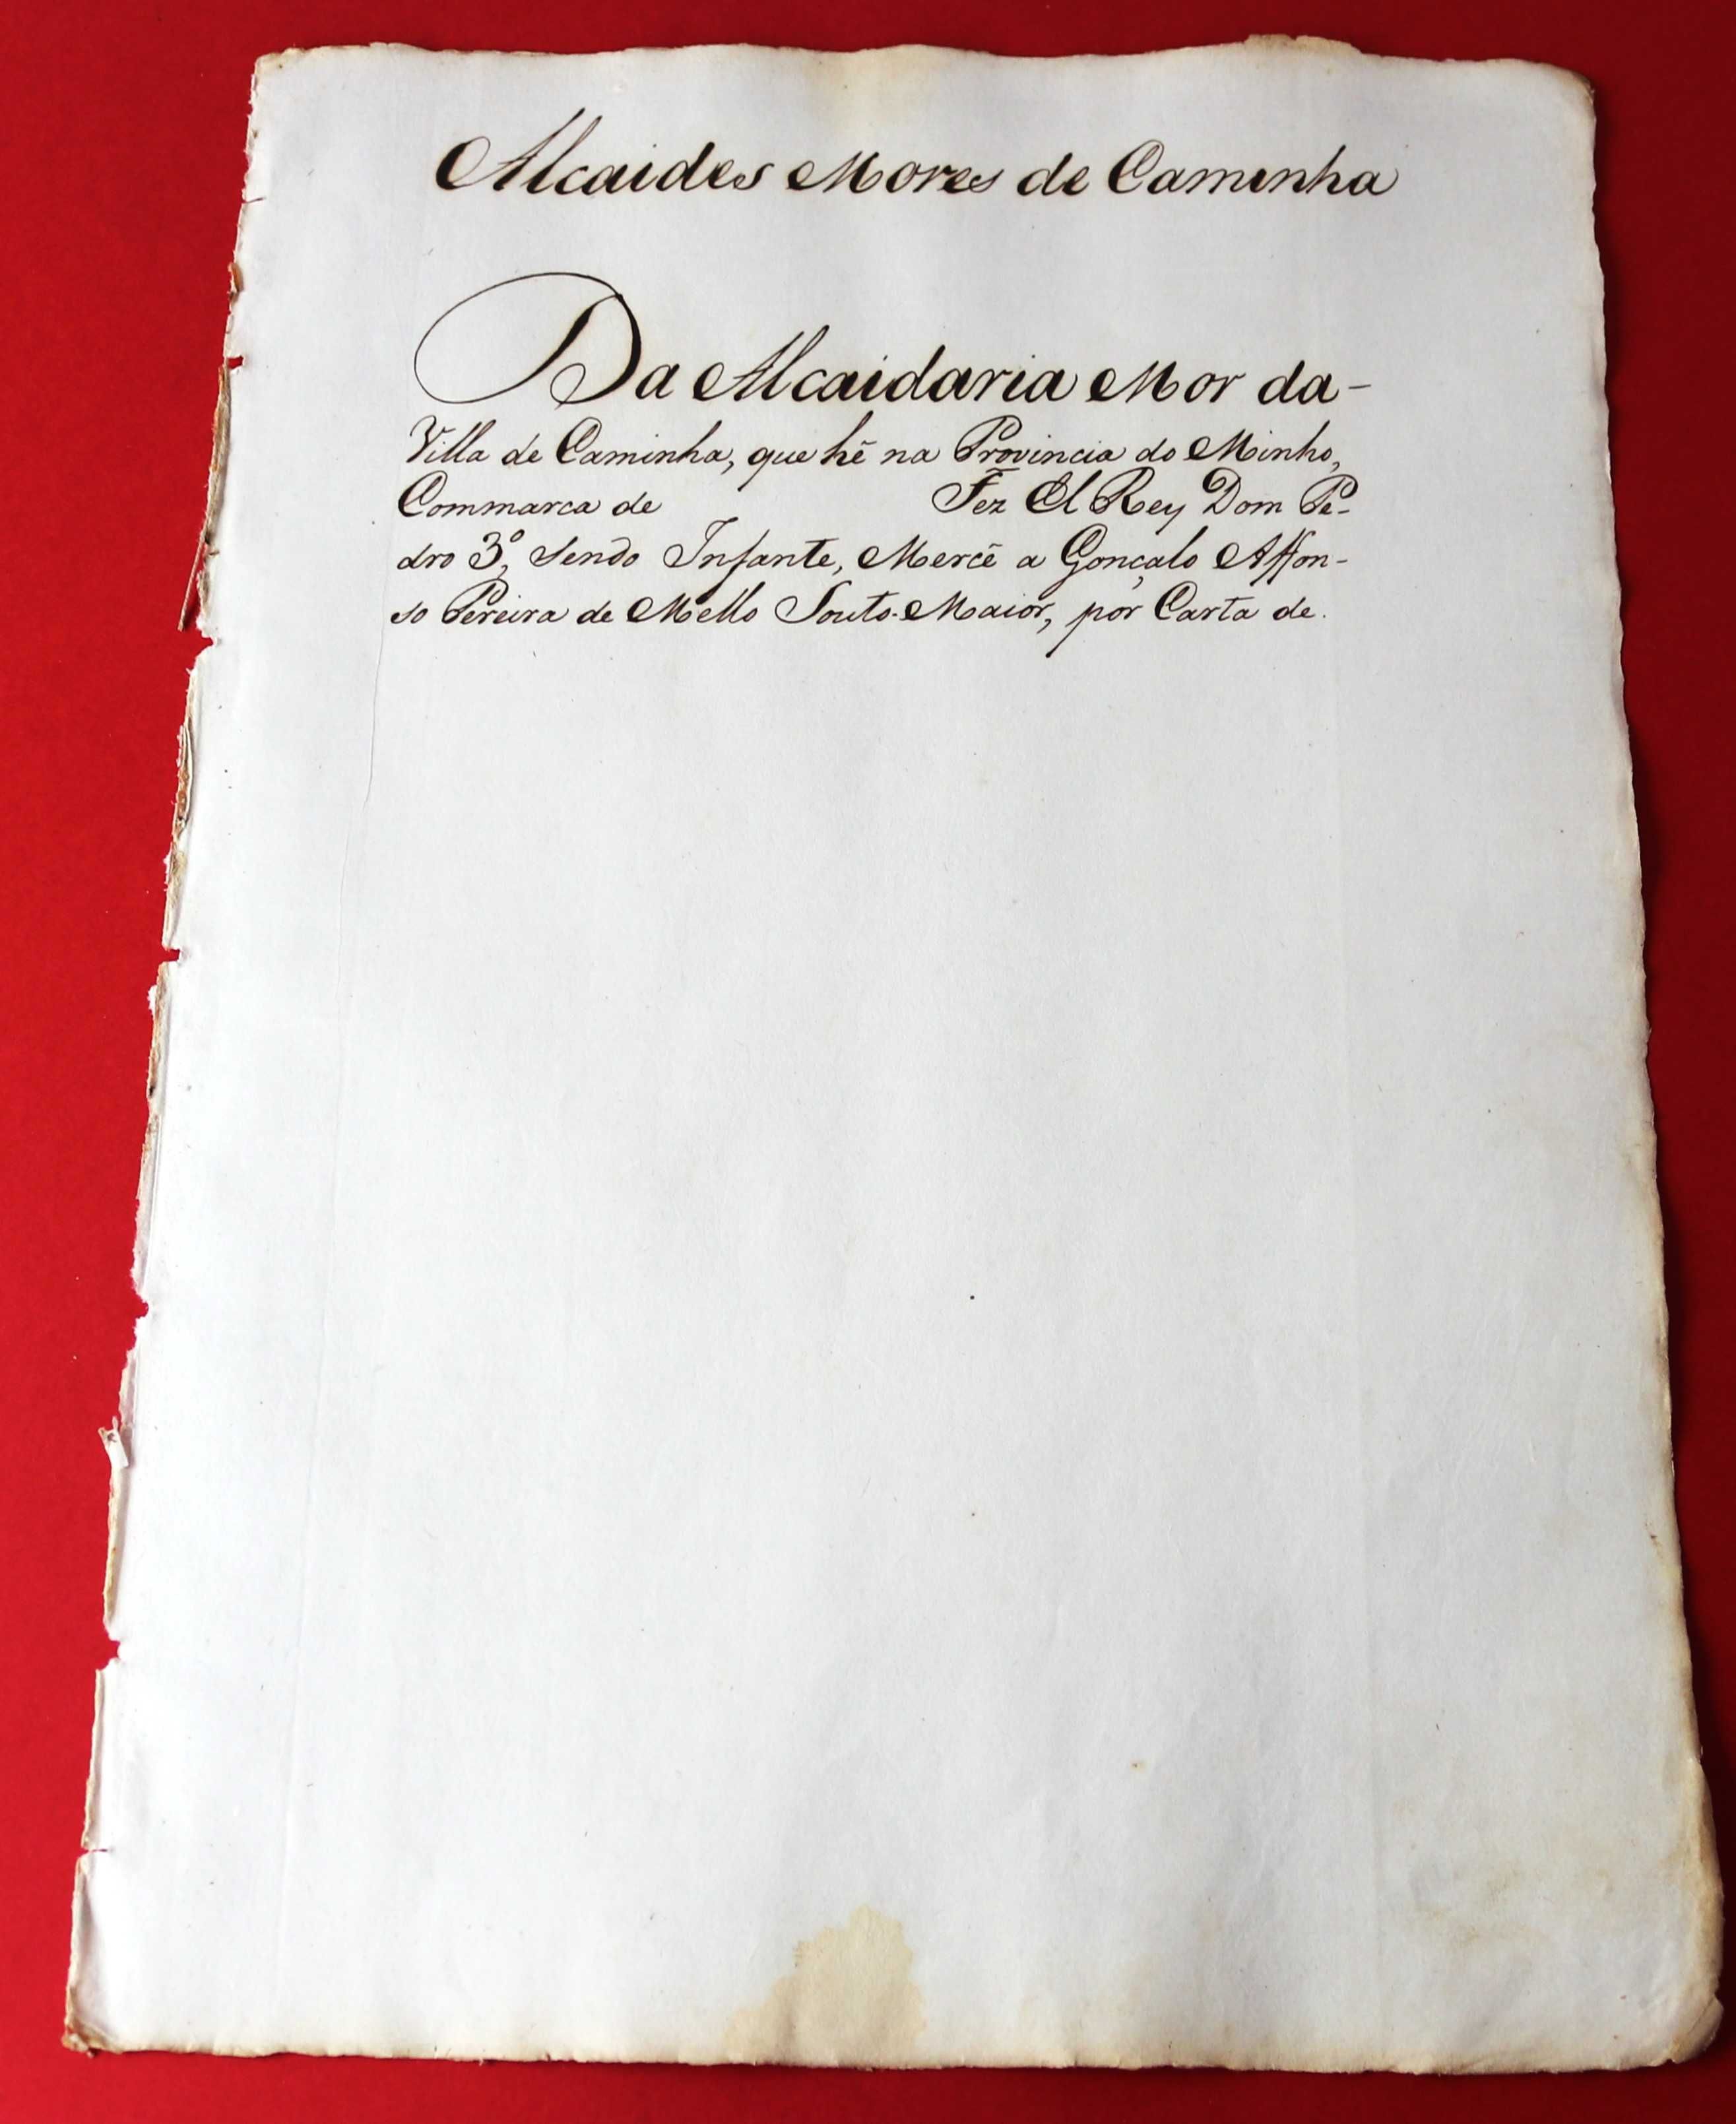 Alcaides Mores de Caminha
Da Alcaidaria Mor da-
Villa de Caminha, que hé na Provincia do Minho,
Commarca de Fez El Rey Dom Pe-
dro 3º, sendo Infante, Mercê a Gonçalo Affon-
so Pereira de Mello Souto-Maior, por Carta de.